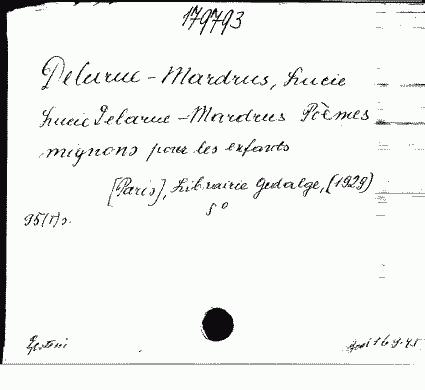 179793
Delarue-Mardrus, Lucie
Lucie Delarue-Mardrus Poèmes
mignons pour les enfants
[Paris], Librairie Gedalge, (1929)
5°